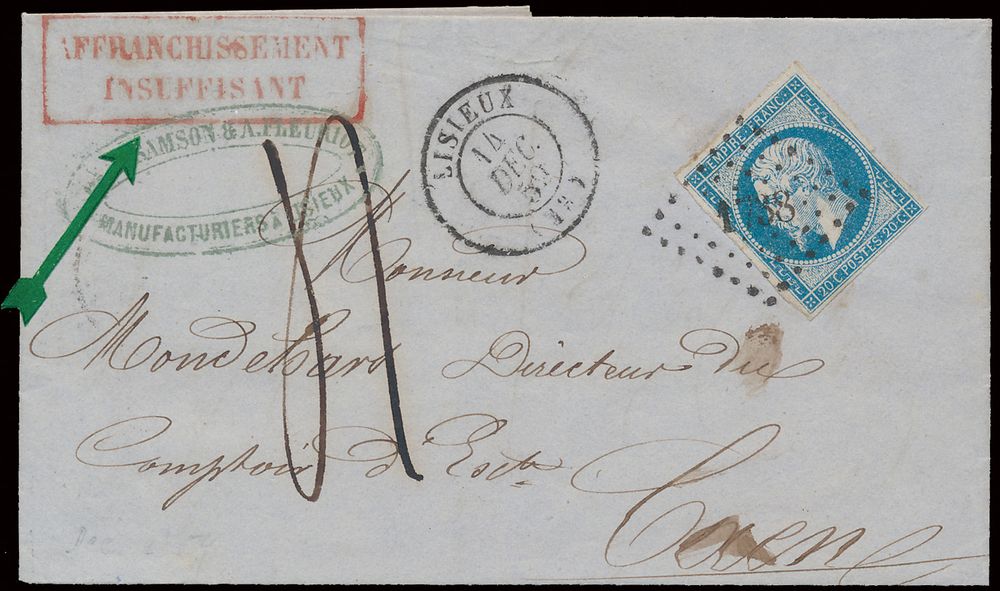 AFFRANCHISSEMENT
INSUFFISANT
SAMSON & A. FLEURIOT
MANUFACTURIERS A LISIEUX
LISIEUX
14
DEC.
(13)
EMPIRE FRANC.
20 C. POSTES. 20 C.
1738
Monsieur
Directeur du
Comptoir d'Escte
Caen